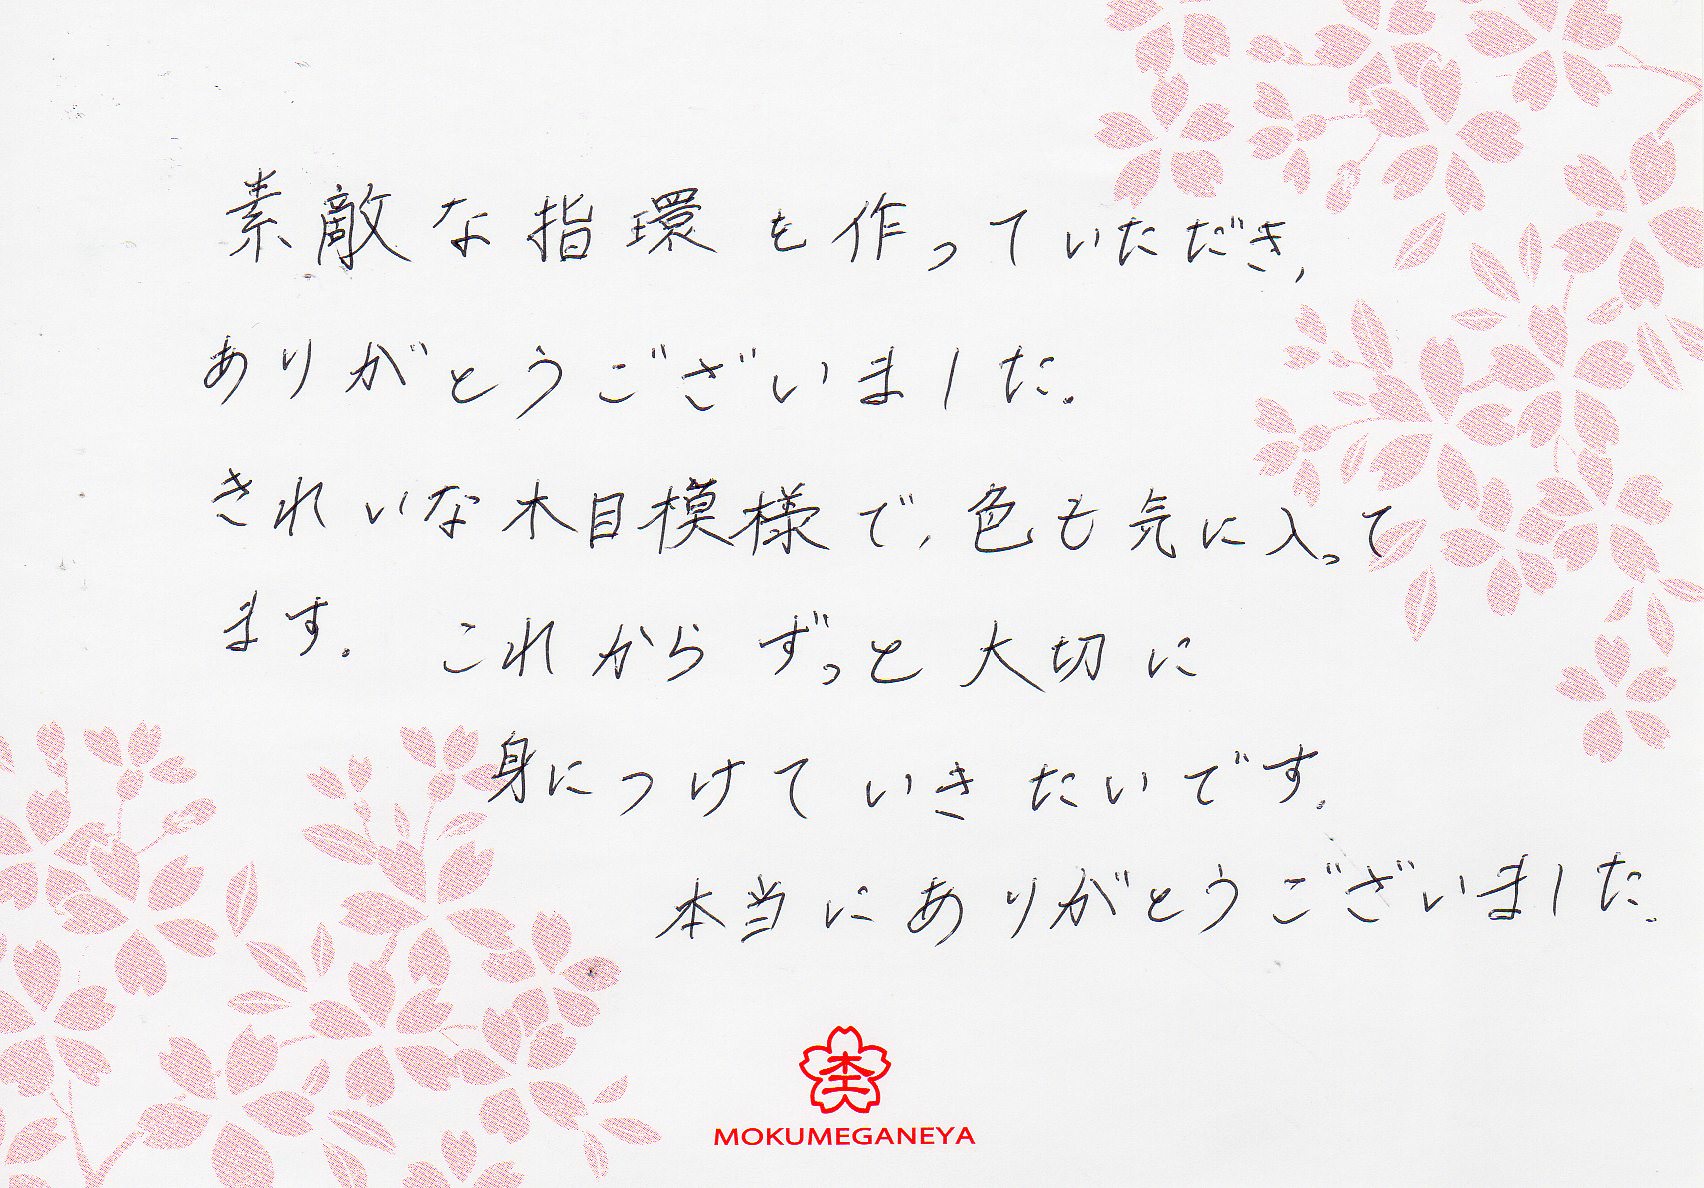 素敵な指環を作っていただき、
ありがとうございました。
きれいな木目模様で、色も気に入って
ます。これからずっと大切に
身につけていきたいです。
本当にありがとうございました。
杢
MOKUMEGANEYA